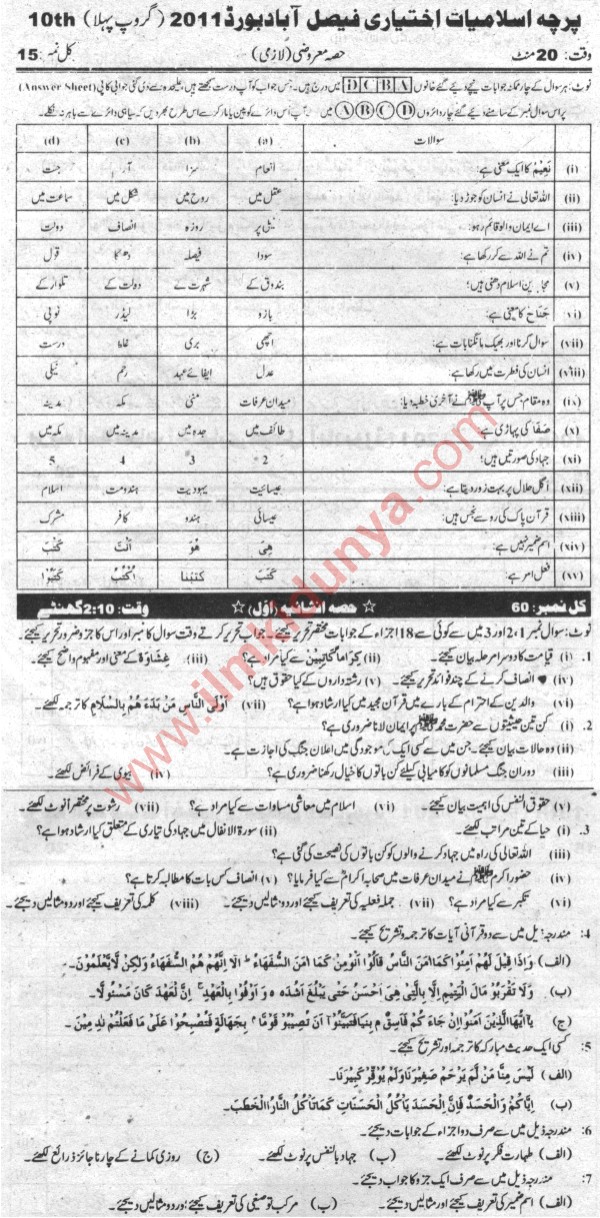 پرچہ اسلامیات اختیاری فیصل آباد بورڈ 2011 (گروپ پہلا) 10th
وقت: 20 منٹ حصہ معروضی (لازمی) کل نمبر: 15
نوٹ: ہر سوال کے چار ممکنہ جوابات نیچے دیئے گئے خانوں A B C D میں درج ہیں۔ جس جواب کو آپ درست سمجھتے ہیں، علیحدہ سے دی گئی جوابی کاپی (Answer Sheet)
پر اس سوال نمبر کے سامنے دیئے گئے چار دائروں A B C D میں سے اُس دائرے کو پین یا مارکر سے اس طرح بھر دیں کہ سیاہی دائرے سے باہر نہ نکلے۔
سوالات (a) (b) (c) (d)
(i) نَعِیْمٌ کا ایک معنی ہے: انعام سزا آرا جنت
(ii) اللہ تعالی نے انسان کو جوڑ دیا: عقل میں روح میں شکل میں سماعت میں
(iii) اے ایمان والو قائم رہو: نیکی پر روزہ انصاف دولت
(iv) تم نے اللہ سے کر رکھا ہے: سودا فیصلہ دھوکا قول
(v) مجاہدین اسلام دھنی ہیں: بندوق کے شہرت کے دولت کے تلوار کے
(vi) جَنَاحٌ کا معنی ہے: بازو بڑا لیڈر ٹوپی
(vii) سوال کرنا اور بھیک مانگنا بات ہے: اچھی بری غلط درست
(viii) انسان کی فطرت میں رکھا ہے: عدل ایفائے عہد رحم نیکی
(ix) وہ مقام جس پر آپ ﷺ نے آخری خطبہ دیا: میدان عرفات منیٰ مکہ مدینہ
(x) صفا کی پہاڑی ہے: طائف میں جدہ میں مدینہ میں مکہ میں
(xi) جہاد کی صورتیں ہیں: 2 3 4 5
(xii) اکل حلال پر بہت زور دیتا ہے: عیسائیت یہودیت ہندومت اسلام
(xiii) قرآن پاک کی رو سے نجس ہیں: عیسائی ہندو کافر مشرک
(xiv) اسم ضمیر نہیں ہے: هِیَ هُوَ اَنْتَ كَتَبَ
(xv) فعل امر ہے: كَتَبَ كَتَبْنَا اُكْتُبْ كَتَبُوْا
کل نمبر: 60 ☆ حصہ انشائیہ (اوّل) ☆ وقت: 2:10 گھنٹے
نوٹ: سوال نمبر 1، 2 اور 3 میں سے کوئی سے 18 اجزاء کے جوابات مختصر تحریر کیجئے۔ جواب تحریر کرتے وقت سوال کا نمبر اور اس کا جزو ضرور تحریر کیجئے۔
1. (i) قیامت کا دوسرا مرحلہ بیان کیجئے۔ (ii) كِرَامًا كَاتِبِیْنَ سے کیا مراد ہے؟ (iii) غِشَاوَةٌ کے معنی اور مفہوم واضح کیجئے۔
(iv) انصاف کرنے کے چند فوائد تحریر کیجئے۔ (v) رشتہ داروں کے کیا حقوق ہیں؟
(vi) والدین کے احترام کے بارے میں قرآن مجید میں کیا ارشاد ہوا ہے؟ (vii) اَوْلَی النَّاسِ مَنْ بَدَءَ هُمْ بِالسَّلَامِ کا ترجمہ لکھئے۔
2. (i) کن تین حیثیتوں سے حضرت محمد ﷺ پر ایمان لانا ضروری ہے؟
(ii) وہ حالات بیان کیجئے۔ جن میں سے کسی ایک کی موجودگی میں اعلان جنگ کی اجازت ہے۔
(iii) دوران جنگ مسلمانوں کو کامیابی کیلئے کن باتوں کا خیال رکھنا ضروری ہے؟ (iv) بیوی کے فرائض لکھئے۔
(v) حقوق النفس کی اہمیت بیان کیجئے۔ (vi) اسلام میں معاشی مساوات سے کیا مراد ہے؟ (vii) رشوت پر مختصر نوٹ لکھئے۔
3. (i) حیا کے تین مراتب لکھئے۔ (ii) سورۃ الانفال میں جہاد کی تیاری کے متعلق کیا ارشاد ہوا ہے؟
(iii) اللہ تعالی کی راہ میں جہاد کرنے والوں کو کن باتوں کی نصیحت کی گئی ہے؟
(iv) حضور اکرم ﷺ نے میدان عرفات میں صحابہ اکرام سے کیا فرمایا؟ (v) انصاف کس بات کا مطالبہ کرتا ہے؟
(vi) تکبر سے کیا مراد ہے؟ (vii) جملہ فعلیہ کی تعریف کیجئے اور دو مثالیں دیجئے۔ (viii) کلمہ کی تعریف کیجئے اور دو مثالیں دیجئے۔
4: مندرجہ ذیل میں سے دو قرآنی آیات کا ترجمہ و تشریح کیجئے۔
(الف) وَاِذَا قِیْلَ لَهُمْ اٰمِنُوْا كَمَا اٰمَنَ النَّاسُ قَالُوْا اَنُؤْمِنُ كَمَا اٰمَنَ السُّفَهَاءُ ط اَلَا اِنَّهُمْ هُمُ السُّفَهَاءُ وَلٰكِنْ لَّا یَعْلَمُوْنَ۔
(ب) وَلَا تَقْرَبُوْا مَالَ الْیَتِیْمِ اِلَّا بِالَّتِیْ هِیَ اَحْسَنُ حَتّٰی یَبْلُغَ اَشُدَّهٗ وَ اَوْفُوْا بِالْعَهْدِ ۚ اِنَّ الْعَهْدَ كَانَ مَسْئُوْلًا۔
(ج) یٰۤاَیُّهَا الَّذِیْنَ اٰمَنُوْا اِنْ جَاءَ كُمْ فَاسِقٌ بِنَبَاٍ فَتَبَیَّنُوْا اَنْ تُصِیْبُوْا قَوْمًا بِجَهَالَةٍ فَتُصْبِحُوْا عَلٰی مَا فَعَلْتُمْ نٰدِمِیْنَ۔
5: کسی ایک حدیث مبارکہ کا ترجمہ اور تشریح کیجئے۔
(الف) لَیْسَ مِنَّا مَنْ لَّمْ یَرْحَمْ صَغِیْرَنَا وَلَمْ یُوَقِّرْ كَبِیْرَنَا۔
(ب) اِیَّاكُمْ وَالْحَسَدَ فَاِنَّ الْحَسَدَ یَاْكُلُ الْحَسَنَاتِ كَمَا تَاْكُلُ النَّارُ الْحَطَبَ۔
6: مندرجہ ذیل میں سے صرف دو اجزاء کے جوابات دیجئے۔
(الف) طہارت فکر پر نوٹ لکھئے۔ (ب) جہاد بالنفس پر نوٹ لکھئے۔ (ج) روزی کمانے کے چار ناجائز ذرائع لکھئے۔
7: مندرجہ ذیل میں سے صرف ایک جزو کا جواب دیجئے۔
(الف) اسم ضمیر کی تعریف کیجئے اور مثالیں دیجئے۔ (ب) مرکب توصیفی کی تعریف کیجئے؛ اور دو مثالیں دیجئے۔
www.ilmkidunya.com